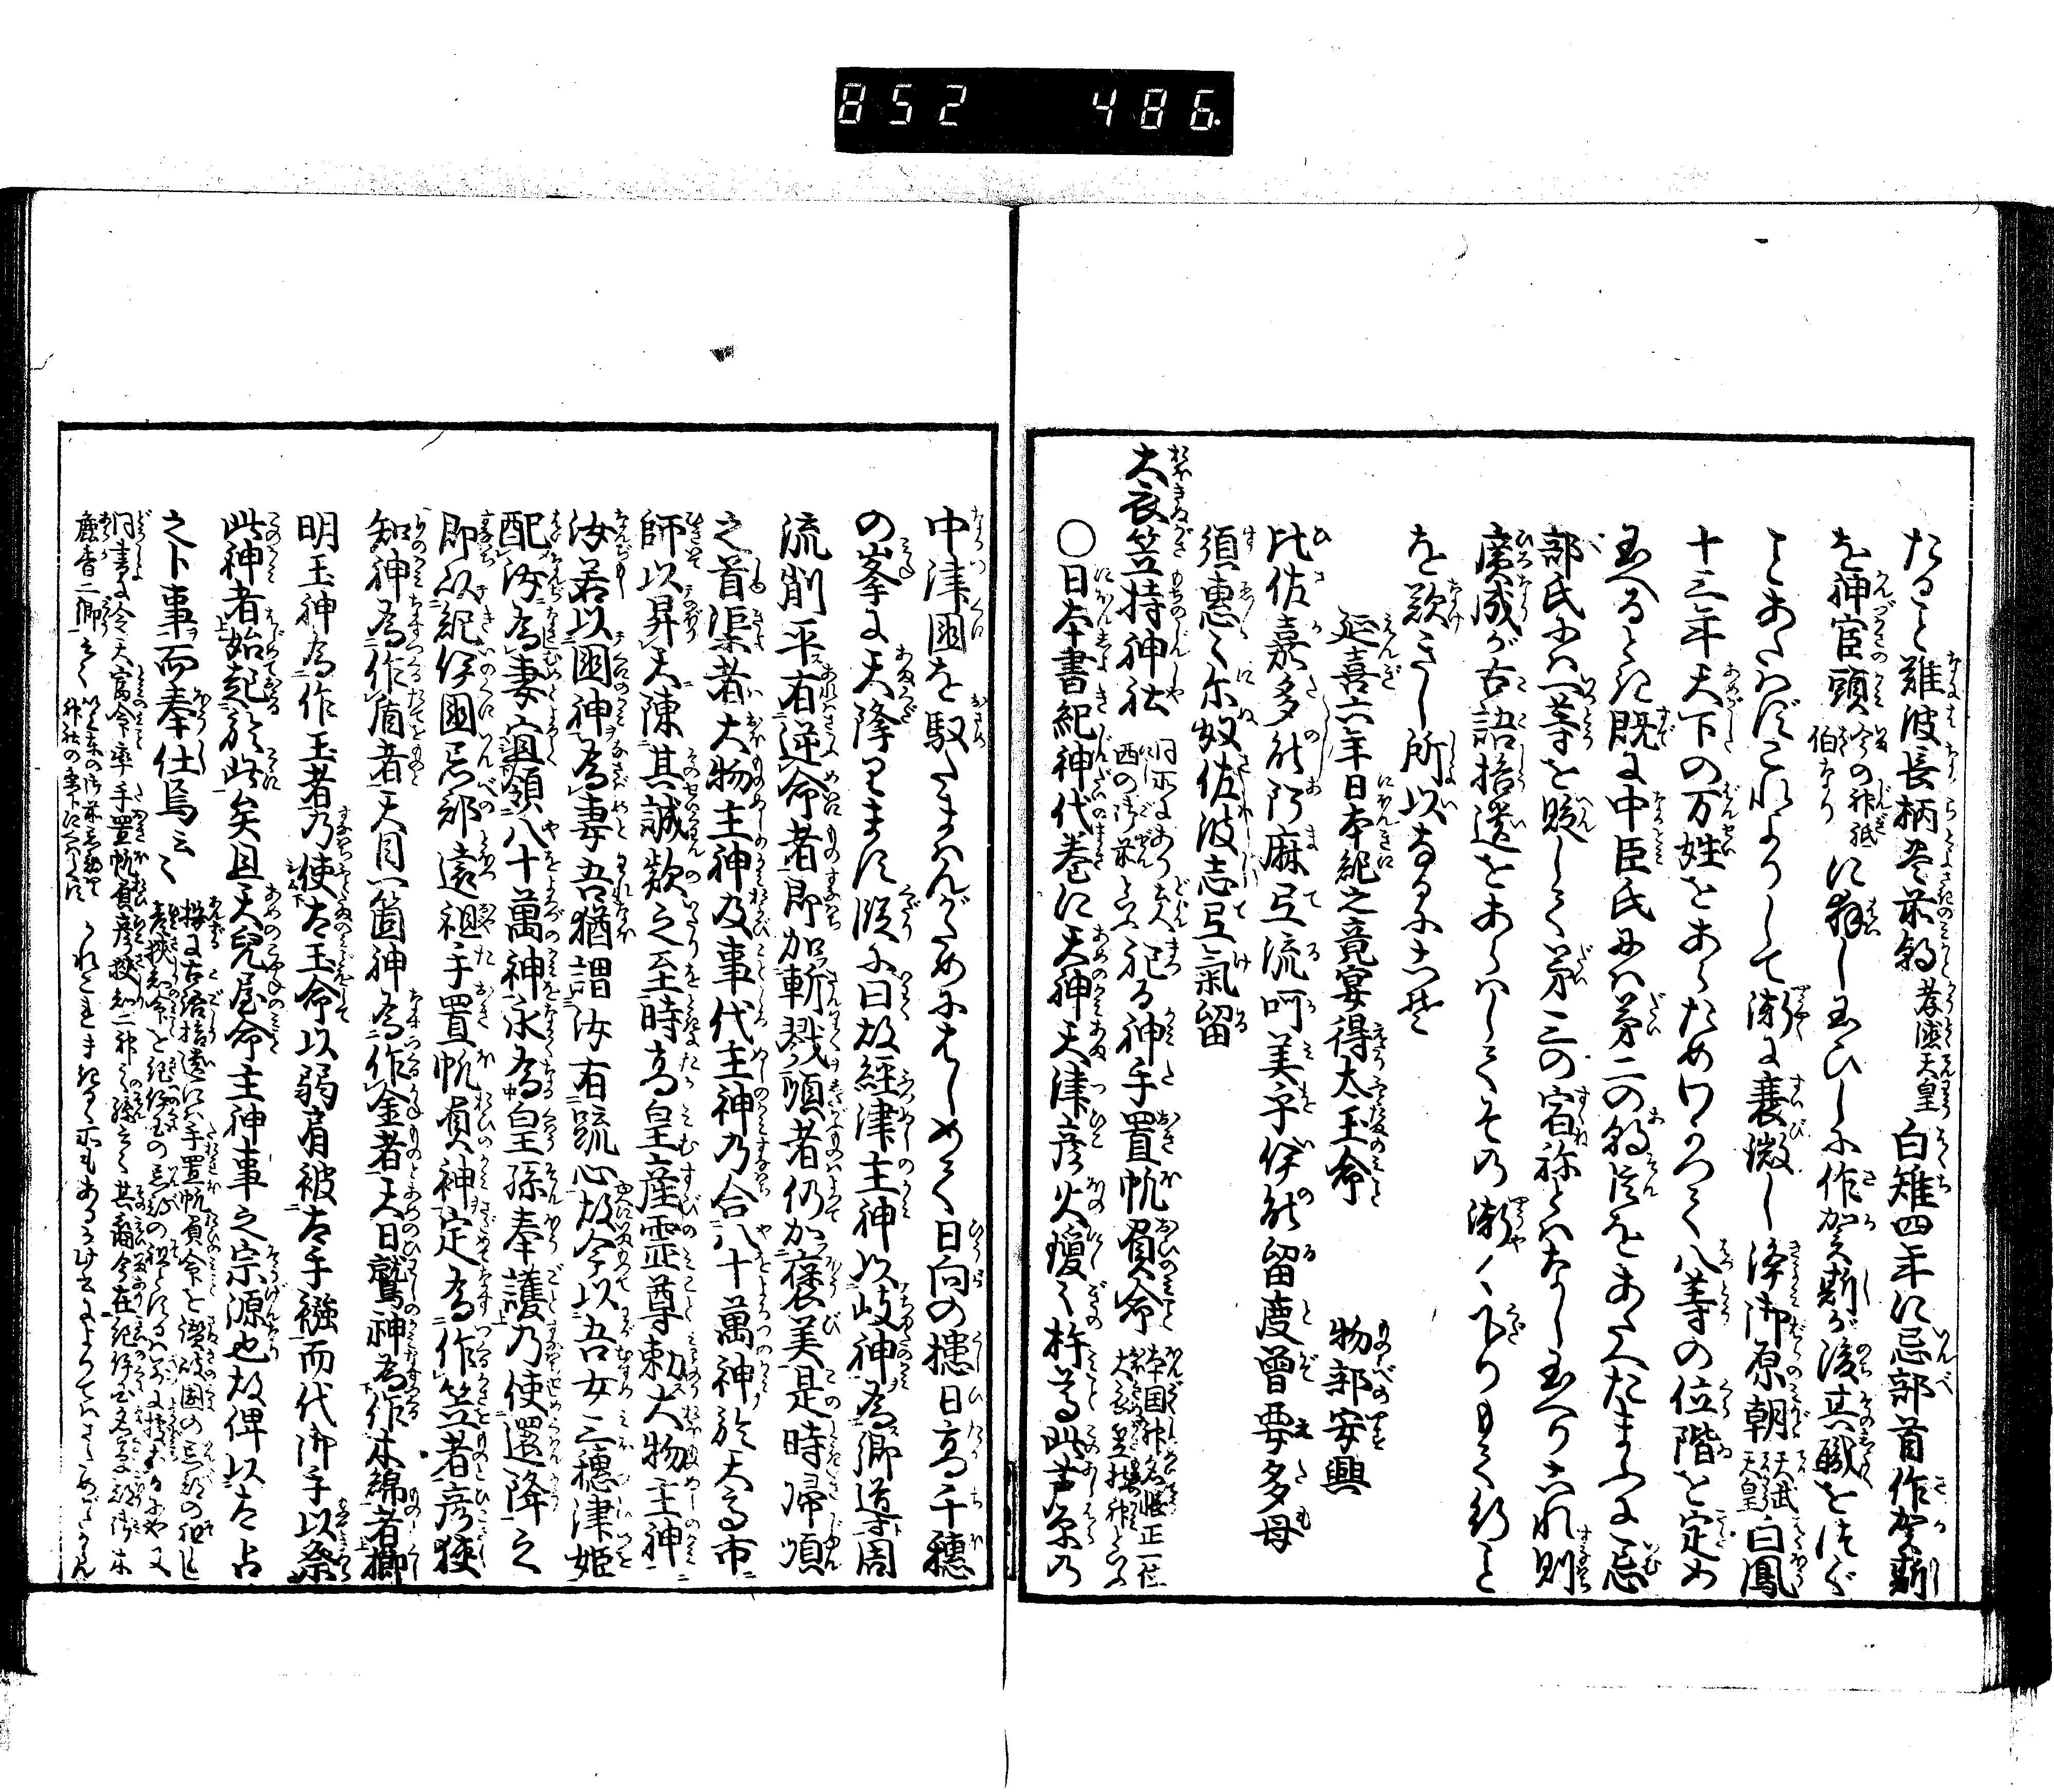 852 486
たるを難波長柄豊前朝孝徳天皇白雉四年に忌部首作賀斯
を神官頭今の神祇伯なりに拜し玉ひしに作賀斯が後其職をつぐ
ことあたはずこれよりして漸に衰微し浄御原朝天武天皇白鳳
十三年天下の万姓をあらためわかつて八等の位階を定め
玉へるとき既に中臣氏には第二の朝臣をあたへたまふに忌
部氏には一等を貶して第三の宿祢とはなし玉へりこれ則
廣成が古語拾遺をあらはしてその漸々下りもて行こと
を歎きし所以なるにこそ
延喜六年日本紀之竟宴得太玉命 物部安興
比佐嘉多能阿麻弖流呵美乎伊能留度曽要多母
須惠々尓奴佐波志弖氣留
大衣笠持神社 同所にあり土人西の御前といふ 祀る神手置帆負命 本国神名帳正一位大衣笠持神といふ
○日本書紀神代巻に天神天津彦火瓊々杵尊此芦原の
中津國を馭たまはんがためにはじめて日向の槵日高千穂
の峯に天降ります段に曰故経津主神以岐神為郷導周
流削平有逆命者即加斬戮順者仍加褒美是時帰順
之首渠者大物主神及事代主神乃合八十萬神於天高市
師以昇天陳其誠款之至時高皇産霊尊勅大物主神
汝若以國神為妻吾猶謂汝有疏心故今以吾女三穂津姫
配汝為妻宜領八十萬神永為皇孫奉護乃使還降之
即以紀伊國忌部遠祖手置帆負神定為作笠者彦狭
知神為作盾者天目一箇神為作金者天日鷲神為作木綿者櫛
明玉神為作玉者乃使太玉命以弱肩被太手襁而代御手以祭
此神者始起於此矣且天児屋命主神事之宗源也故俾以太占
之卜事而奉仕焉云々 按に古語拾遺には手置帆負命を讃岐国の忌部の祖とし
彦狭知命を紀伊国の忌部の祖とす
同書に令天富命率手置帆負彦狭知二神之孫云々其裔今在紀伊国名草郡御木
麁香二郷云々